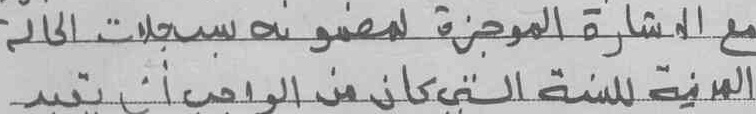 مع الاشارة الموجزة لمضمونه بسجلات الحالة
المدنية للسنة التي كان من الواجب أن تقيد